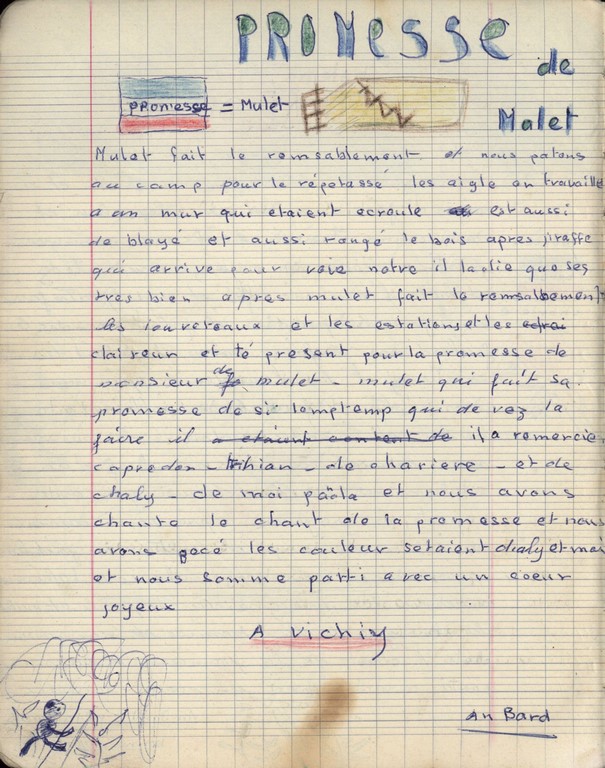 PROMESSE
de
Malet
PROMESSE = Mulet
Mulet fait le remsablement et nous patons
au camp pour le répetassé les aigle on travaille
a un mur qui etaient ecroule est aussi
de blayé et aussi rangé le bois apres jiraffe
qui arrive pour voir notre il la die que ses
tres bien apres mulet fait le remsablement
les louveteaux et les estations et les
claireur et té present pour la promesse de
monsieur de mulet - mulet qui fait sa
promesse de si lomptemp qui de vez la
faire il a etaient content de il a remercie
capredon - - de chariere - et de
chaly - de moi paola et nous avons
chante le chant de la promesse et nous
avons pocé les couleur setaient chaly et moi
et nous somme parti avec un coeur
joyeux
A vichiy
An Bard